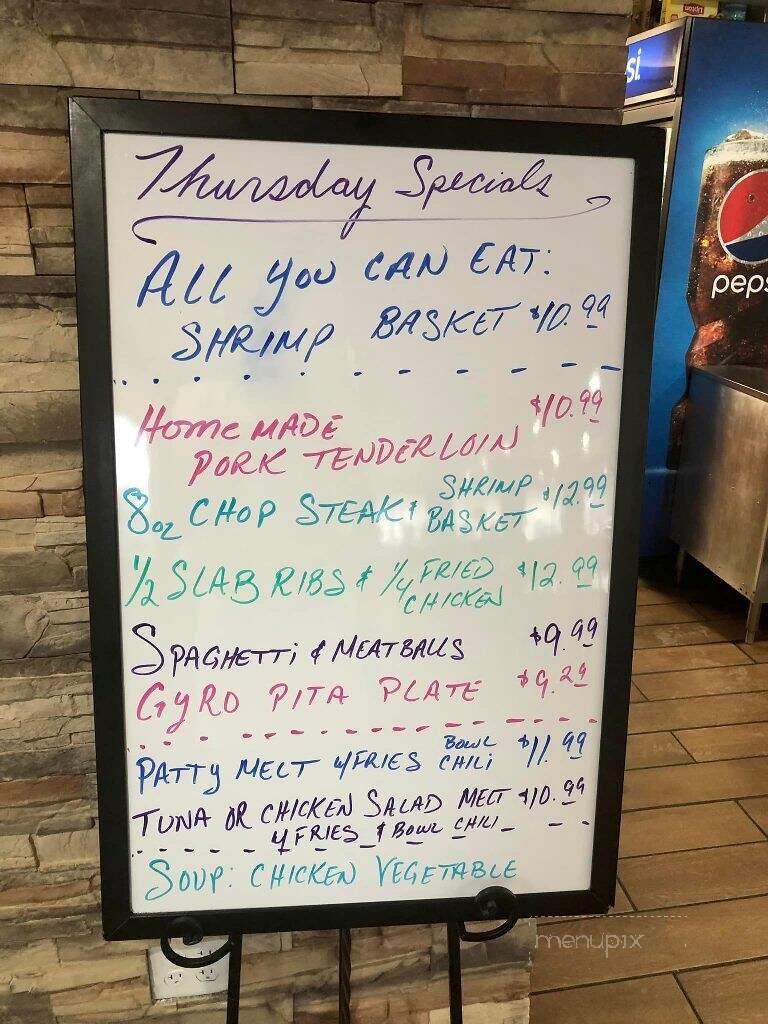 Thursday Specials
ALL YOU CAN EAT:
SHRIMP BASKET $10.99
HomeMADE $10.99
PORK TENDERLOIN
8oz CHOP STEAK & SHRIMP BASKET $12.99
1/2 SLAB RIBS & 1/4 FRIED CHICKEN $12.99
SPAGHETTi & MEATBALLS $9.99
GYRO PITA PLATE $9.29
PATTY MELT W/FRIES BOWL CHILi $11.99
TUNA OR CHICKEN SALAD MELT $10.99
W/FRIES & BOWL CHILI
SOUP: CHICKEN VEGETABLE
si.
peps
Lipton
menupix